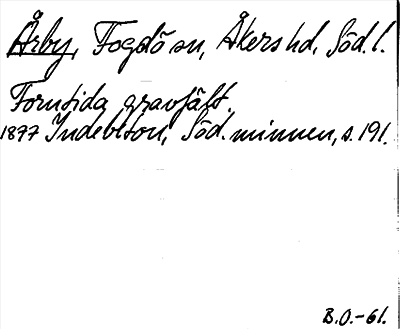 Årby, Fogdö sn, Åkers hd, Söd. l.
Forntida gravfält.
1877 Indebetou, Söd. minnen, s. 191.
B.O.-61.